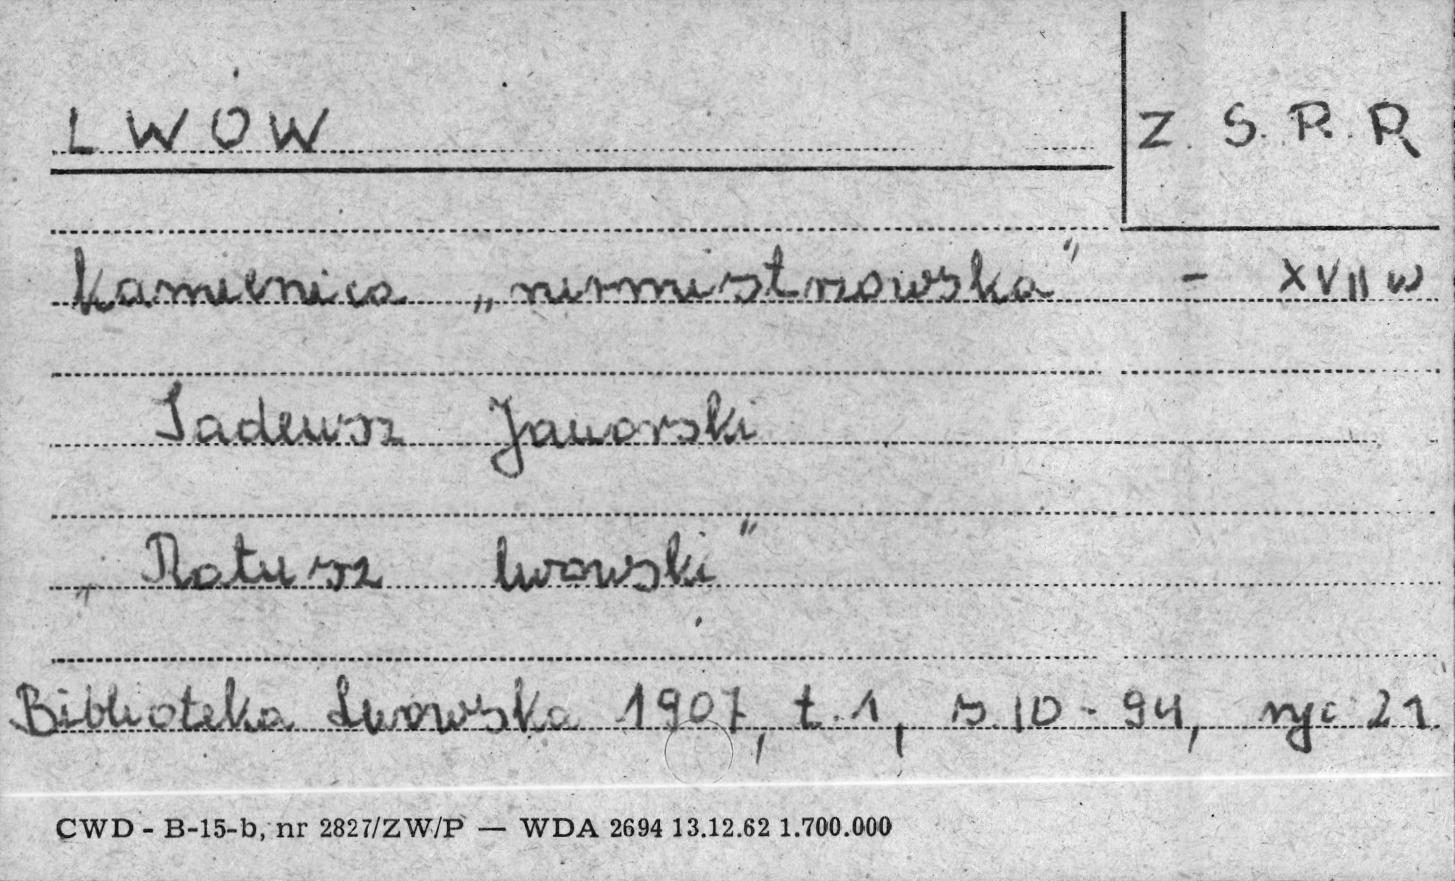 LWÓW
Z.S.R.R
Kamienica „rurmistrzowska" - XVII w
Tadeusz Jaworski
„Ratusz lwowski"
Biblioteka Lwowska 1907, t.1, s.10-94, ryc 21
CWD - B-15-b, nr 2827/ZW/P — WDA 2694 13.12.62 1.700.000